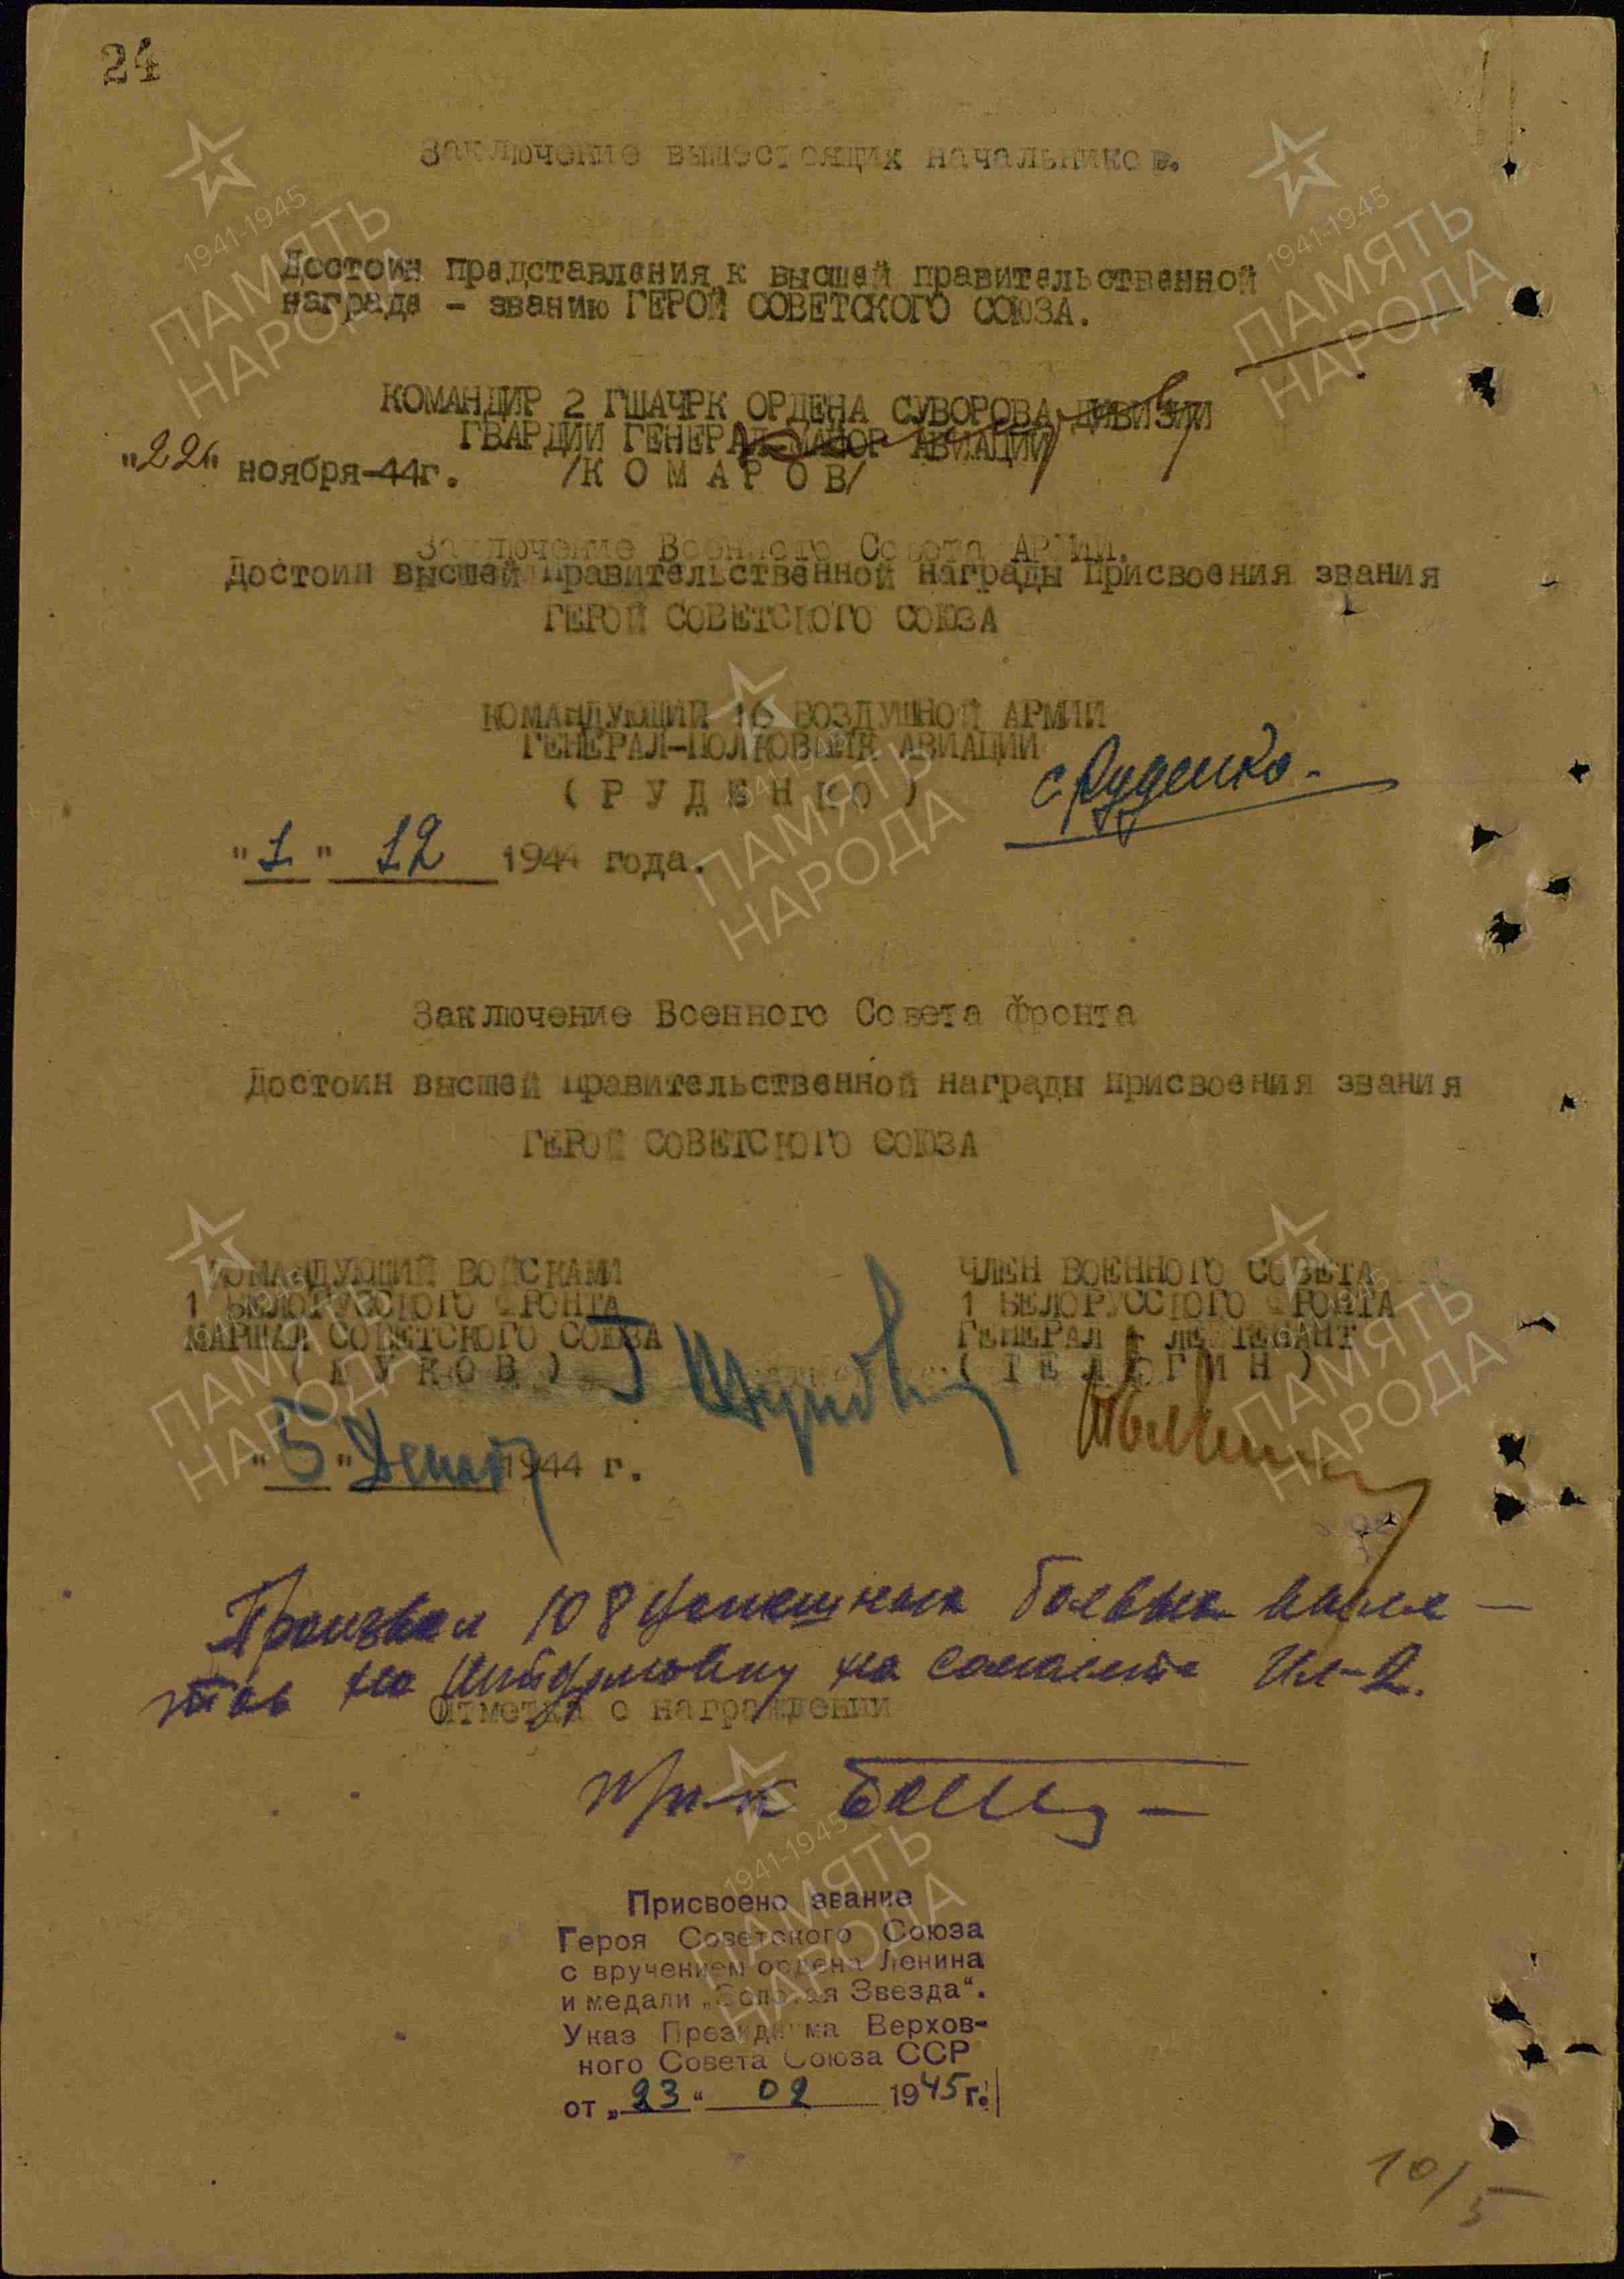 24
Заключение вышестоящих начальников.
Достоин представления к высшей правительственной
награде - званию ГЕРОЙ СОВЕТСКОГО СОЮЗА.
КОМАНДИР 2 ГШАЧРК ОРДЕНА СУВОРОВА ДИВИЗИИ
ГВАРДИИ ГЕНЕРАЛ-МАЙОР АВИАЦИИ
"22" ноября-44г. /КОМАРОВ/
Заключение Военного Совета АРМИИ.
Достоин высшей правительственной награды присвоения звания
ГЕРОЙ СОВЕТСКОГО СОЮЗА
КОМАНДУЮЩИЙ 16 ВОЗДУШНОЙ АРМИИ
ГЕНЕРАЛ-ПОЛКОВНИК АВИАЦИИ
(РУДЕНКО) С Руденко.
"1" 12 1944 года.
Заключение Военного Совета Фронта
Достоин высшей правительственной награды присвоения звания
ГЕРОЙ СОВЕТСКОГО СОЮЗА
КОМАНДУЮЩИЙ ВОЙСКАМИ ЧЛЕН ВОЕННОГО СОВЕТА
1 БЕЛОРУССКОГО ФРОНТА 1 БЕЛОРУССКОГО ФРОНТА
МАРШАЛ СОВЕТСКОГО СОЮЗА ГЕНЕРАЛ - ЛЕЙТЕНАНТ
(ЖУКОВ) Г Жуков (ТЕЛЕГИН)
"5" 1944 г.
Произвел 108 успешных боевых выле-
тов на штурмовку на самолете Ил-2.
Отметка о награждении
Присвоено звание
Героя Советского Союза
с вручением ордена Ленина
и медали „Золотая Звезда“.
Указ Президиума Верхов-
ного Совета Союза ССР
от „23“ 02 1945 г.
10/5
1941-1945
ПАМЯТЬ
НАРОДА
1941-1945
ПАМЯТЬ
НАРОДА
1941-1945
ПАМЯТЬ
НАРОДА
1941-1945
ПАМЯТЬ
НАРОДА
1941-1945
ПАМЯТЬ
НАРОДА
1941-1945
ПАМЯТЬ
НАРОДА